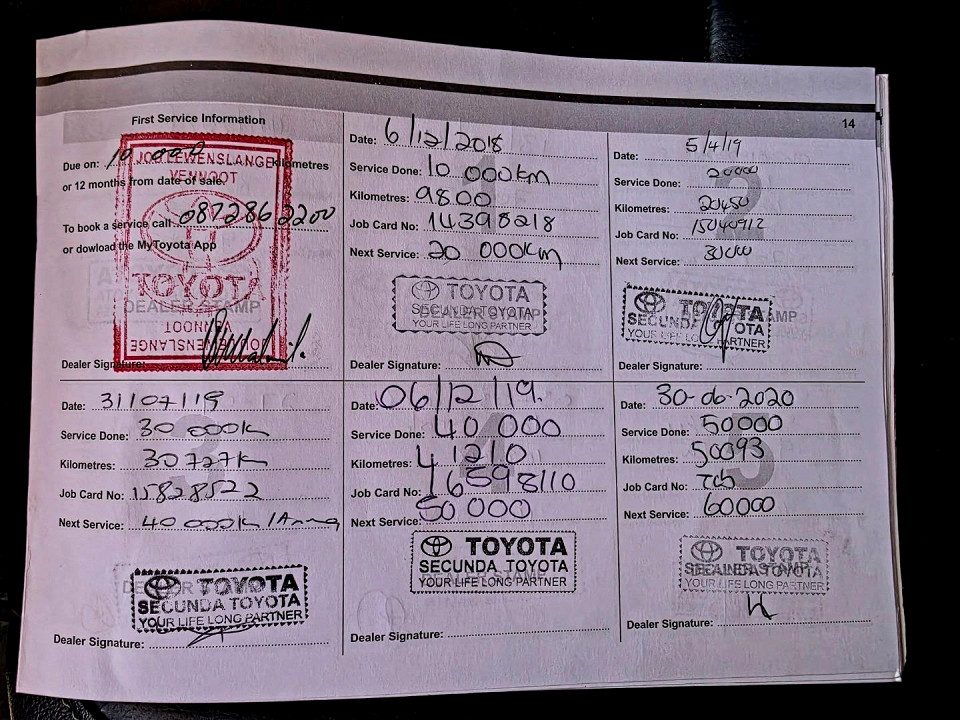 14
First Service Information
Due on: 10 000 kilometres
or 12 months from date of sale.
To book a service call 0872862200
or dowload the MyToyota App
JOU LEWENSLANGE
VENNOOT
TOYOTA
DEALER STAMP
VENNOOT
JOU LEWENSLANGE
Dealer Signature:
1
Date: 6/12/2018
Service Done: 10 000km
Kilometres: 9800
Job Card No: 14398218
Next Service: 20 000km
TOYOTA
SECUNDA TOYOTA
YOUR LIFE LONG PARTNER
Dealer Signature:
2
Date: 5/4/19
Service Done: 20000
Kilometres: 20450
Job Card No: 15040912
Next Service: 30000
TOYOTA
SECUNDA TOYOTA
YOUR LIFE LONG PARTNER
Dealer Signature:
3
Date: 31/07/19
Service Done: 30 000k
Kilometres: 30727k
Job Card No: 15828522
Next Service: 40 000k /
TOYOTA
SECUNDA TOYOTA
YOUR LIFE LONG PARTNER
Dealer Signature:
4
Date: 06/12/19.
Service Done: 40 000
Kilometres: 41210
Job Card No: 16598110
Next Service: 50 000
TOYOTA
SECUNDA TOYOTA
YOUR LIFE LONG PARTNER
Dealer Signature:
5
Date: 30-06-2020
Service Done: 50000
Kilometres: 50093
Job Card No:
Next Service: 60000
TOYOTA
SECUNDA TOYOTA
YOUR LIFE LONG PARTNER
Dealer Signature: